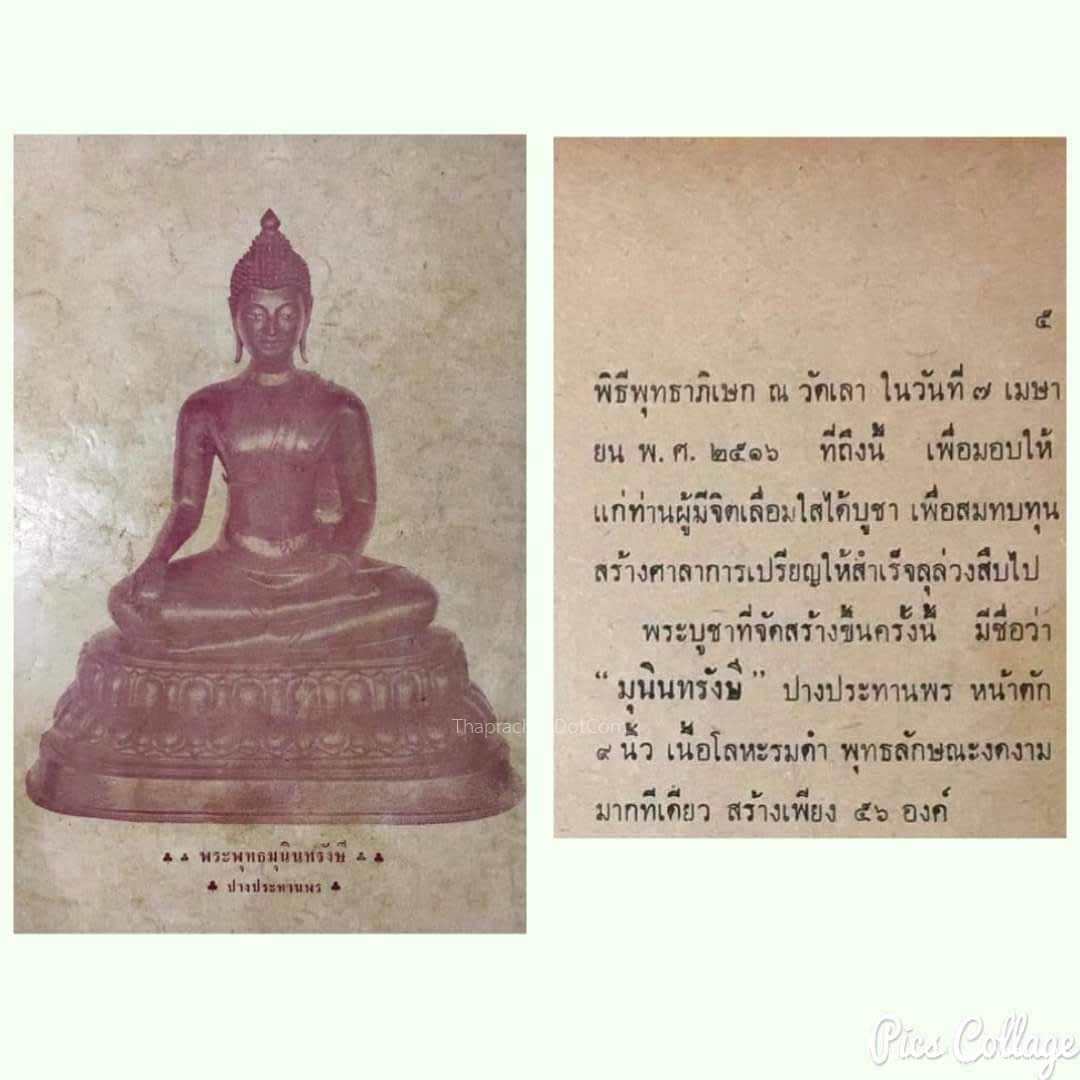 พระพุทธมุนินทรังษี
ปางประทานพร
๕
พิธีพุทธาภิเษก ณ วัดเลา ในวันที่ ๗ เมษา
ยน พ. ศ. ๒๕๑๖ ที่ถึงนี้ เพื่อมอบให้
แก่ท่านผู้มีจิตเลื่อมใสได้บูชา เพื่อสมทบทุน
สร้างศาลาการเปรียญให้สำเร็จลุล่วงสืบไป
พระบูชาที่จัดสร้างขึ้นครั้งนี้ มีชื่อว่า
“ มุนินทรังษี ” ปางประทานพร หน้าตัก
๙ นิ้ว เนื้อโลหะรมดำ พุทธลักษณะงดงาม
มากทีเดียว สร้างเพียง ๕๖ องค์
Pics Collage